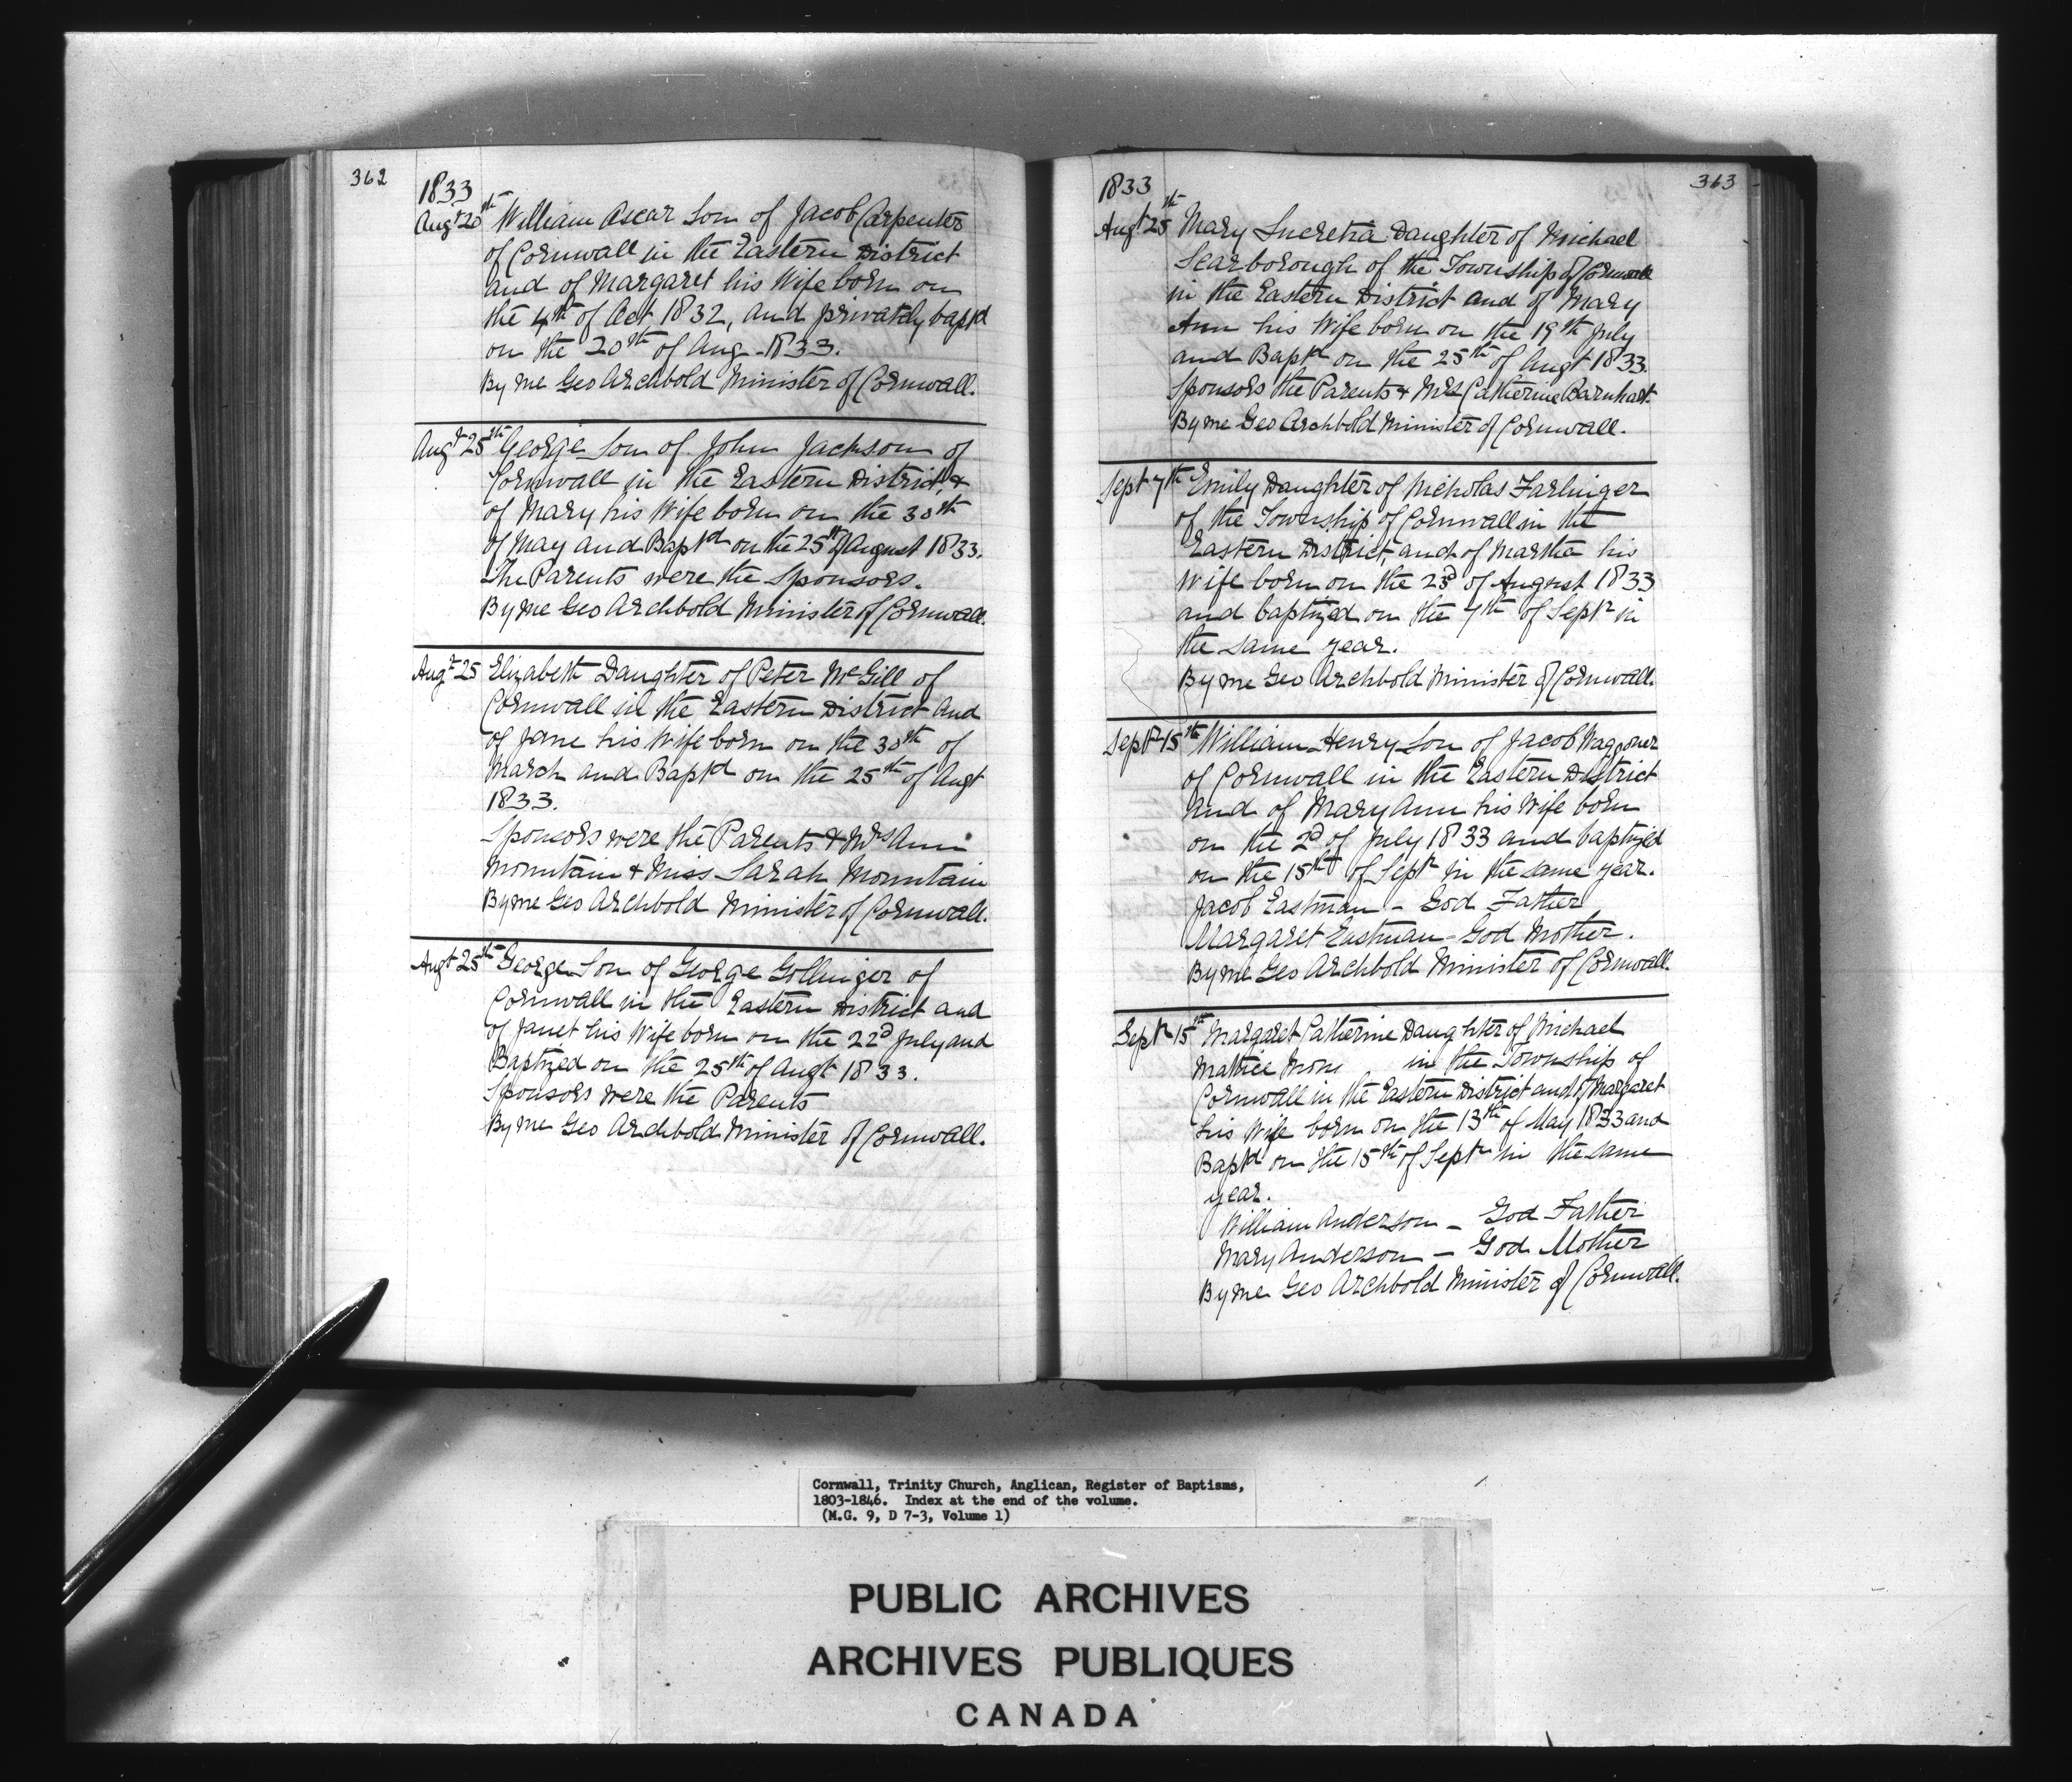 362
1833
Augt 20th William Ascar Son of Jacob Carpenter
of Cornwall in the Eastern District
and of Margaret his Wife born on
the 4th of Oct 1832, and privately bapt'd
on the 20th of Aug - 1833.
By me Geo Archbold Minister of Cornwall.
Augt 25th George Son of John Jackson of
Cornwall in the Eastern District, &
of Mary his Wife born on the 30th
of May and Bapt'd on the 25th of August 1833.
The Parents were the Sponsors.
By me Geo Archbold Minister of Cornwall.
Augt 25 Elizabeth Daughter of Peter McGill of
Cornwall in the Eastern District and
of Jane his Wife born on the 30th of
March and Bapt'd on the 25th of Augt
1833.
Sponsors were the Parents & Mrs Ann
Mountain & Miss Sarah Mountain
By me Geo Archbold Minister of Cornwall.
Augt 25th George Son of George Gollinger of
Cornwall in the Eastern District and
of Janet his Wife born on the 22d July and
Baptized on the 25th of Augt 1833.
Sponsors were the Parents
By me Geo Archbold Minister of Cornwall.
363
1833
Augt 25th Mary Lucretia Daughter of Michael
Scarborough of the Township of Cornwall
in the Eastern District and of Mary
Ann his Wife born on the 19th July
and Bapt'd on the 25th of Augt 1833.
Sponsors the Parents & Mrs Catherine Barnhart.
By me Geo Archbold Minister of Cornwall.
Sept 7th Emily Daughter of Nicholas Farlinger
of the Township of Cornwall in the
Eastern District, and of Martha his
Wife born on the 23d of August 1833
and baptized on the 7th of Septr in
the same year.
By me Geo Archbold Minister of Cornwall.
Septr 15th William Henry Son of Jacob Waggoner
of Cornwall in the Eastern District
and of Mary Ann his Wife born
on the 2d of July 1833 and baptized
on the 15th of Septr in the same year.
Jacob Eastman - God Father
Margaret Eastman - God Mother.
By me Geo Archbold Minister of Cornwall.
Septr 15th Margaret Catherine Daughter of Michael
Mattice in the Township of
Cornwall in the Eastern District and of Margaret
his Wife born on the 13th of May 1833 and
Bapt'd on the 15th of Septr in the same
year.
William Anderson - God Father
Mary Anderson - God Mother
By me Geo Archbold Minister of Cornwall.
Cornwall, Trinity Church, Anglican, Register of Baptisms,
1803-1846. Index at the end of the volume.
(M.G. 9, D 7-3, Volume 1)
PUBLIC ARCHIVES
ARCHIVES PUBLIQUES
CANADA